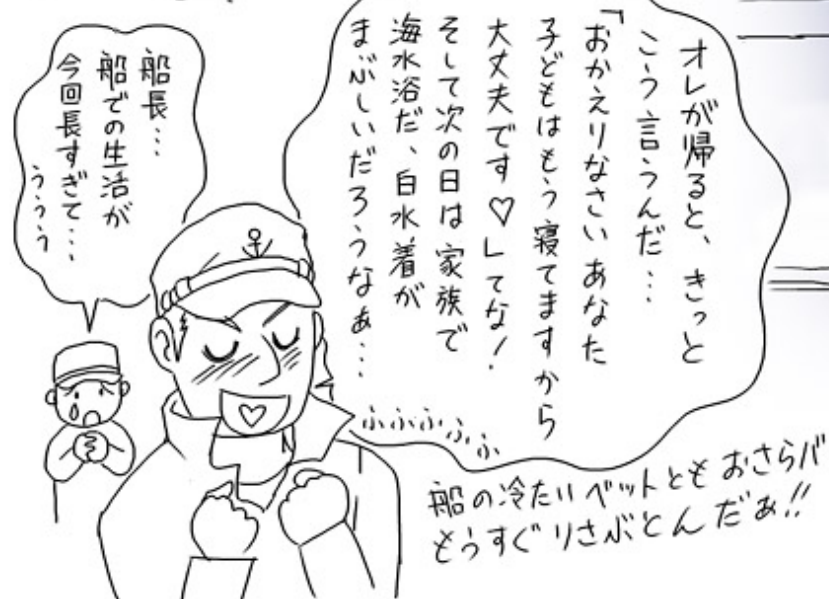 オレが帰ると、きっと
こう言うんだ…
「おかえりなさいあなた
子どもはもう寝てますから
大丈夫です♡」てな!
そして次の日は家族で
海水浴だ、白水着が
まぶしいだろうなぁ…
ふふふふふ
船長…
船での生活が
今回長すぎて…
ううう
船の冷たいベットともおさらバ
もうすぐりさぶとんだぁ!!